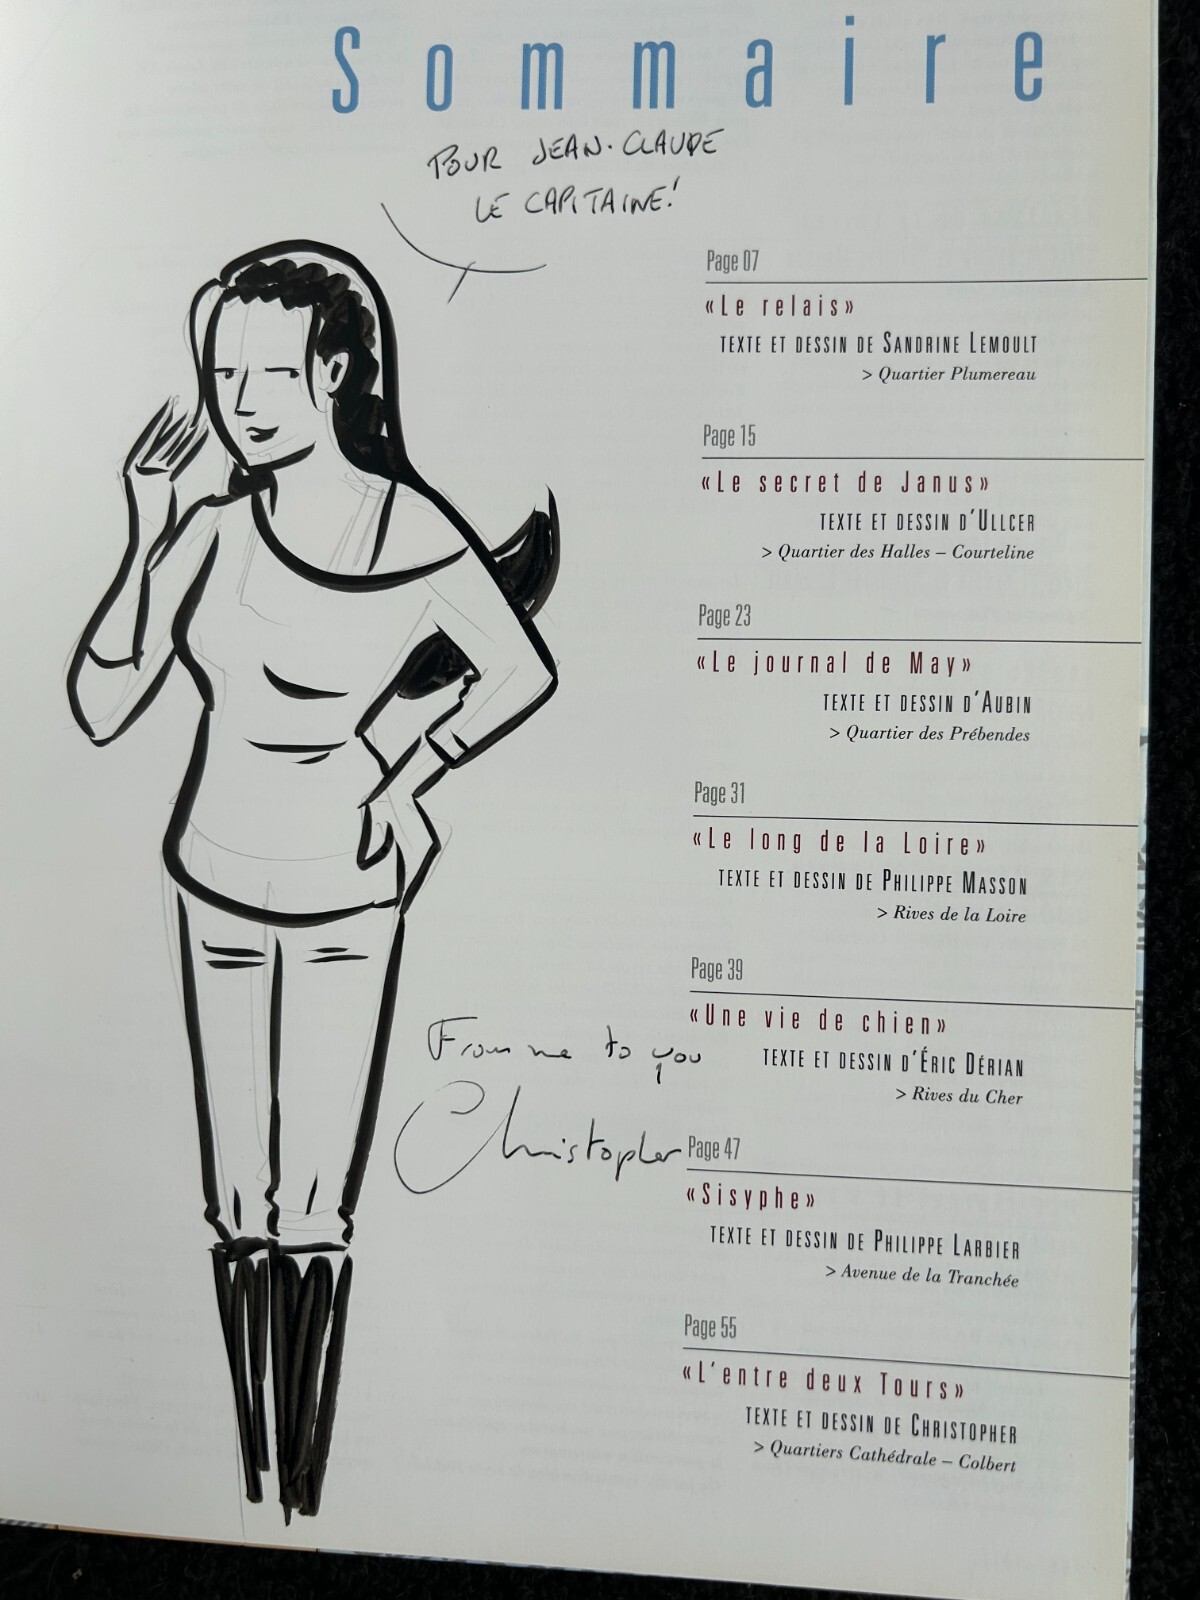 Sommaire
POUR JEAN-CLAUDE
LE CAPITAINE!
Page 07
«Le relais»
TEXTE ET DESSIN DE SANDRINE LEMOULT
> Quartier Plumereau
Page 15
«Le secret de Janus»
TEXTE ET DESSIN D'ULLCER
> Quartier des Halles – Courteline
Page 23
«Le journal de May»
TEXTE ET DESSIN D'AUBIN
> Quartier des Prébendes
Page 31
«Le long de la Loire»
TEXTE ET DESSIN DE PHILIPPE MASSON
> Rives de la Loire
Page 39
«Une vie de chien»
TEXTE ET DESSIN D'ÉRIC DÉRIAN
> Rives du Cher
From me to you
Christopher
Page 47
«Sisyphe»
TEXTE ET DESSIN DE PHILIPPE LARBIER
> Avenue de la Tranchée
Page 55
«L'entre deux Tours»
TEXTE ET DESSIN DE CHRISTOPHER
> Quartiers Cathédrale – Colbert